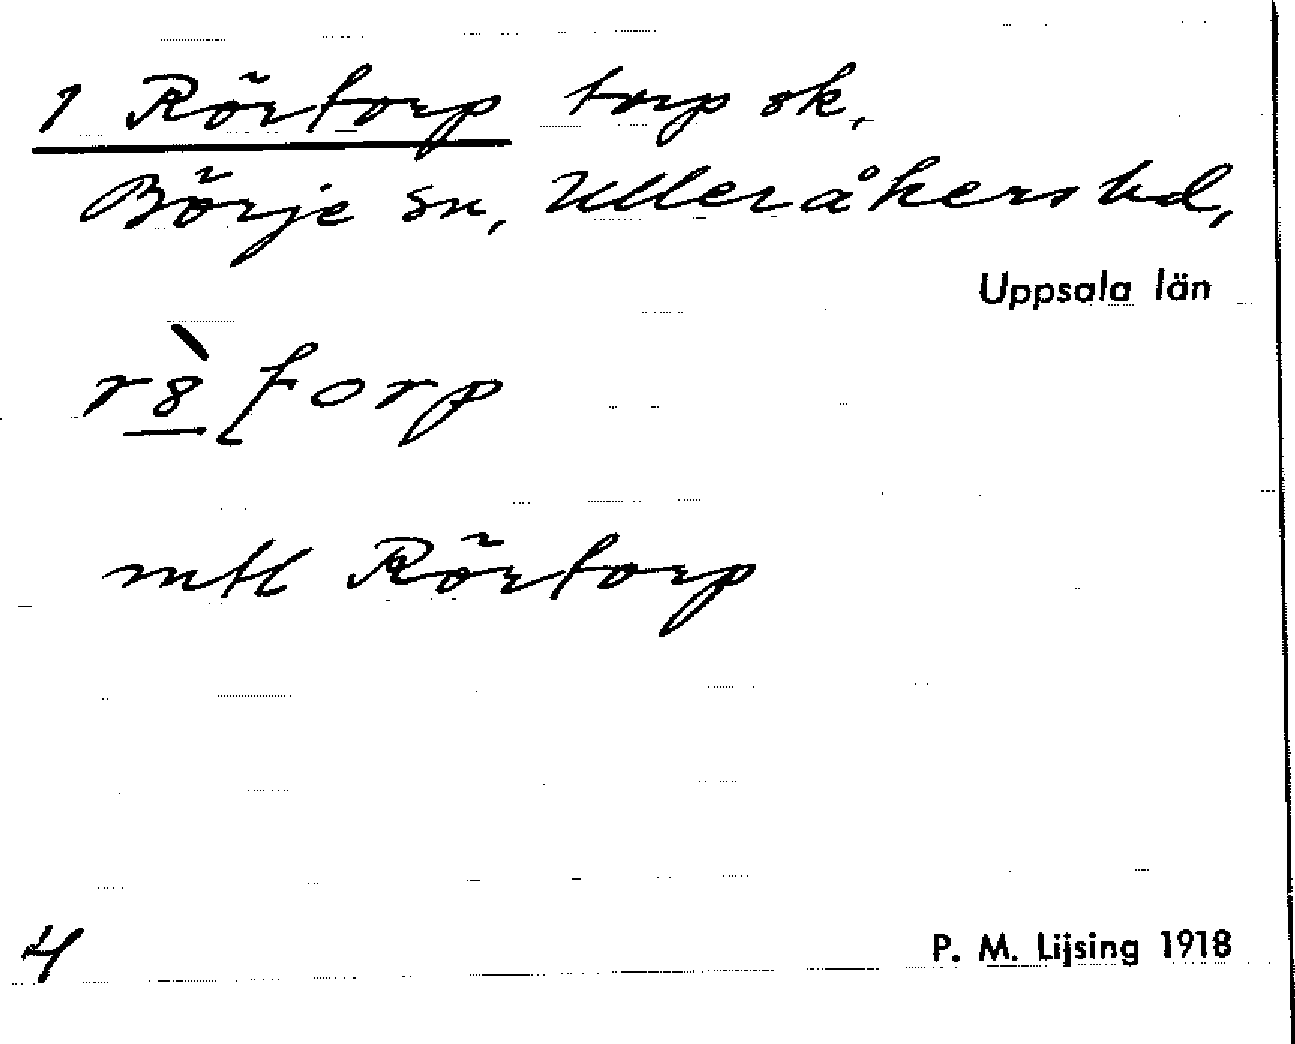 1 Rörtorp torp sk,
Börje sn, Ulleråkers hd,
Uppsala län
rò̱8torp
mtl Rörtorp
4
P. M. Lijsing 1918